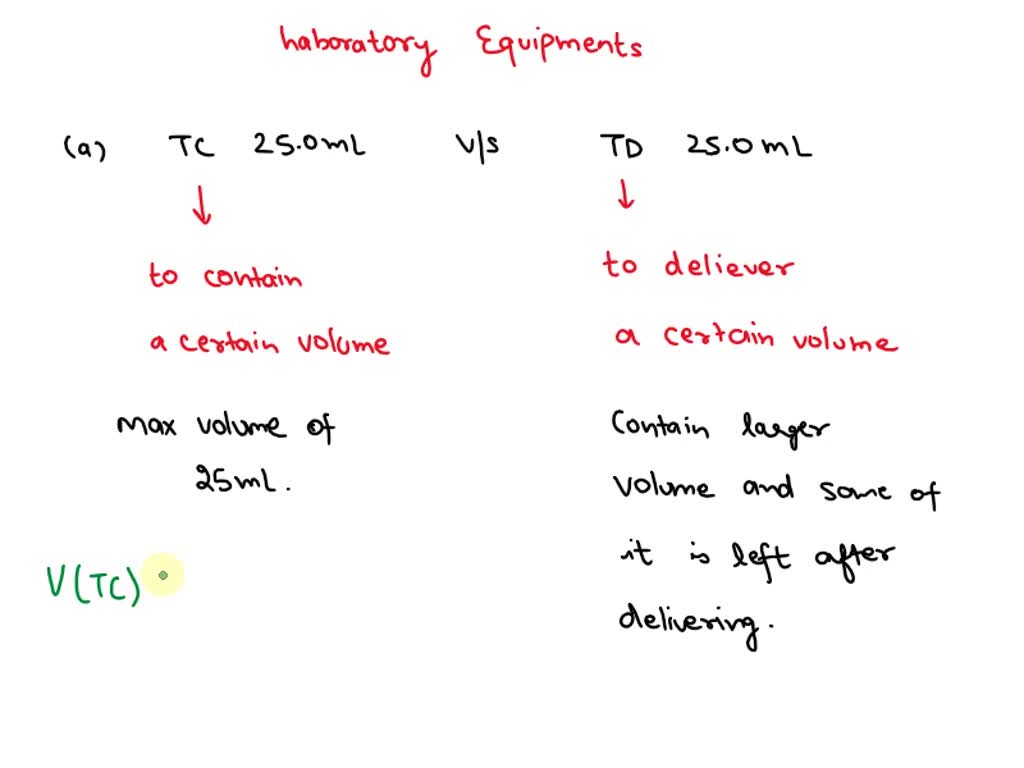 Laboratory Equipments
(a) TC 25.0mL v/s TD 25.0mL
to contain
a certain volume
to deliever
a certain volume
Max volume of
25mL.
Contain larger
volume and some of
it is left after
delivering.
V(TC)